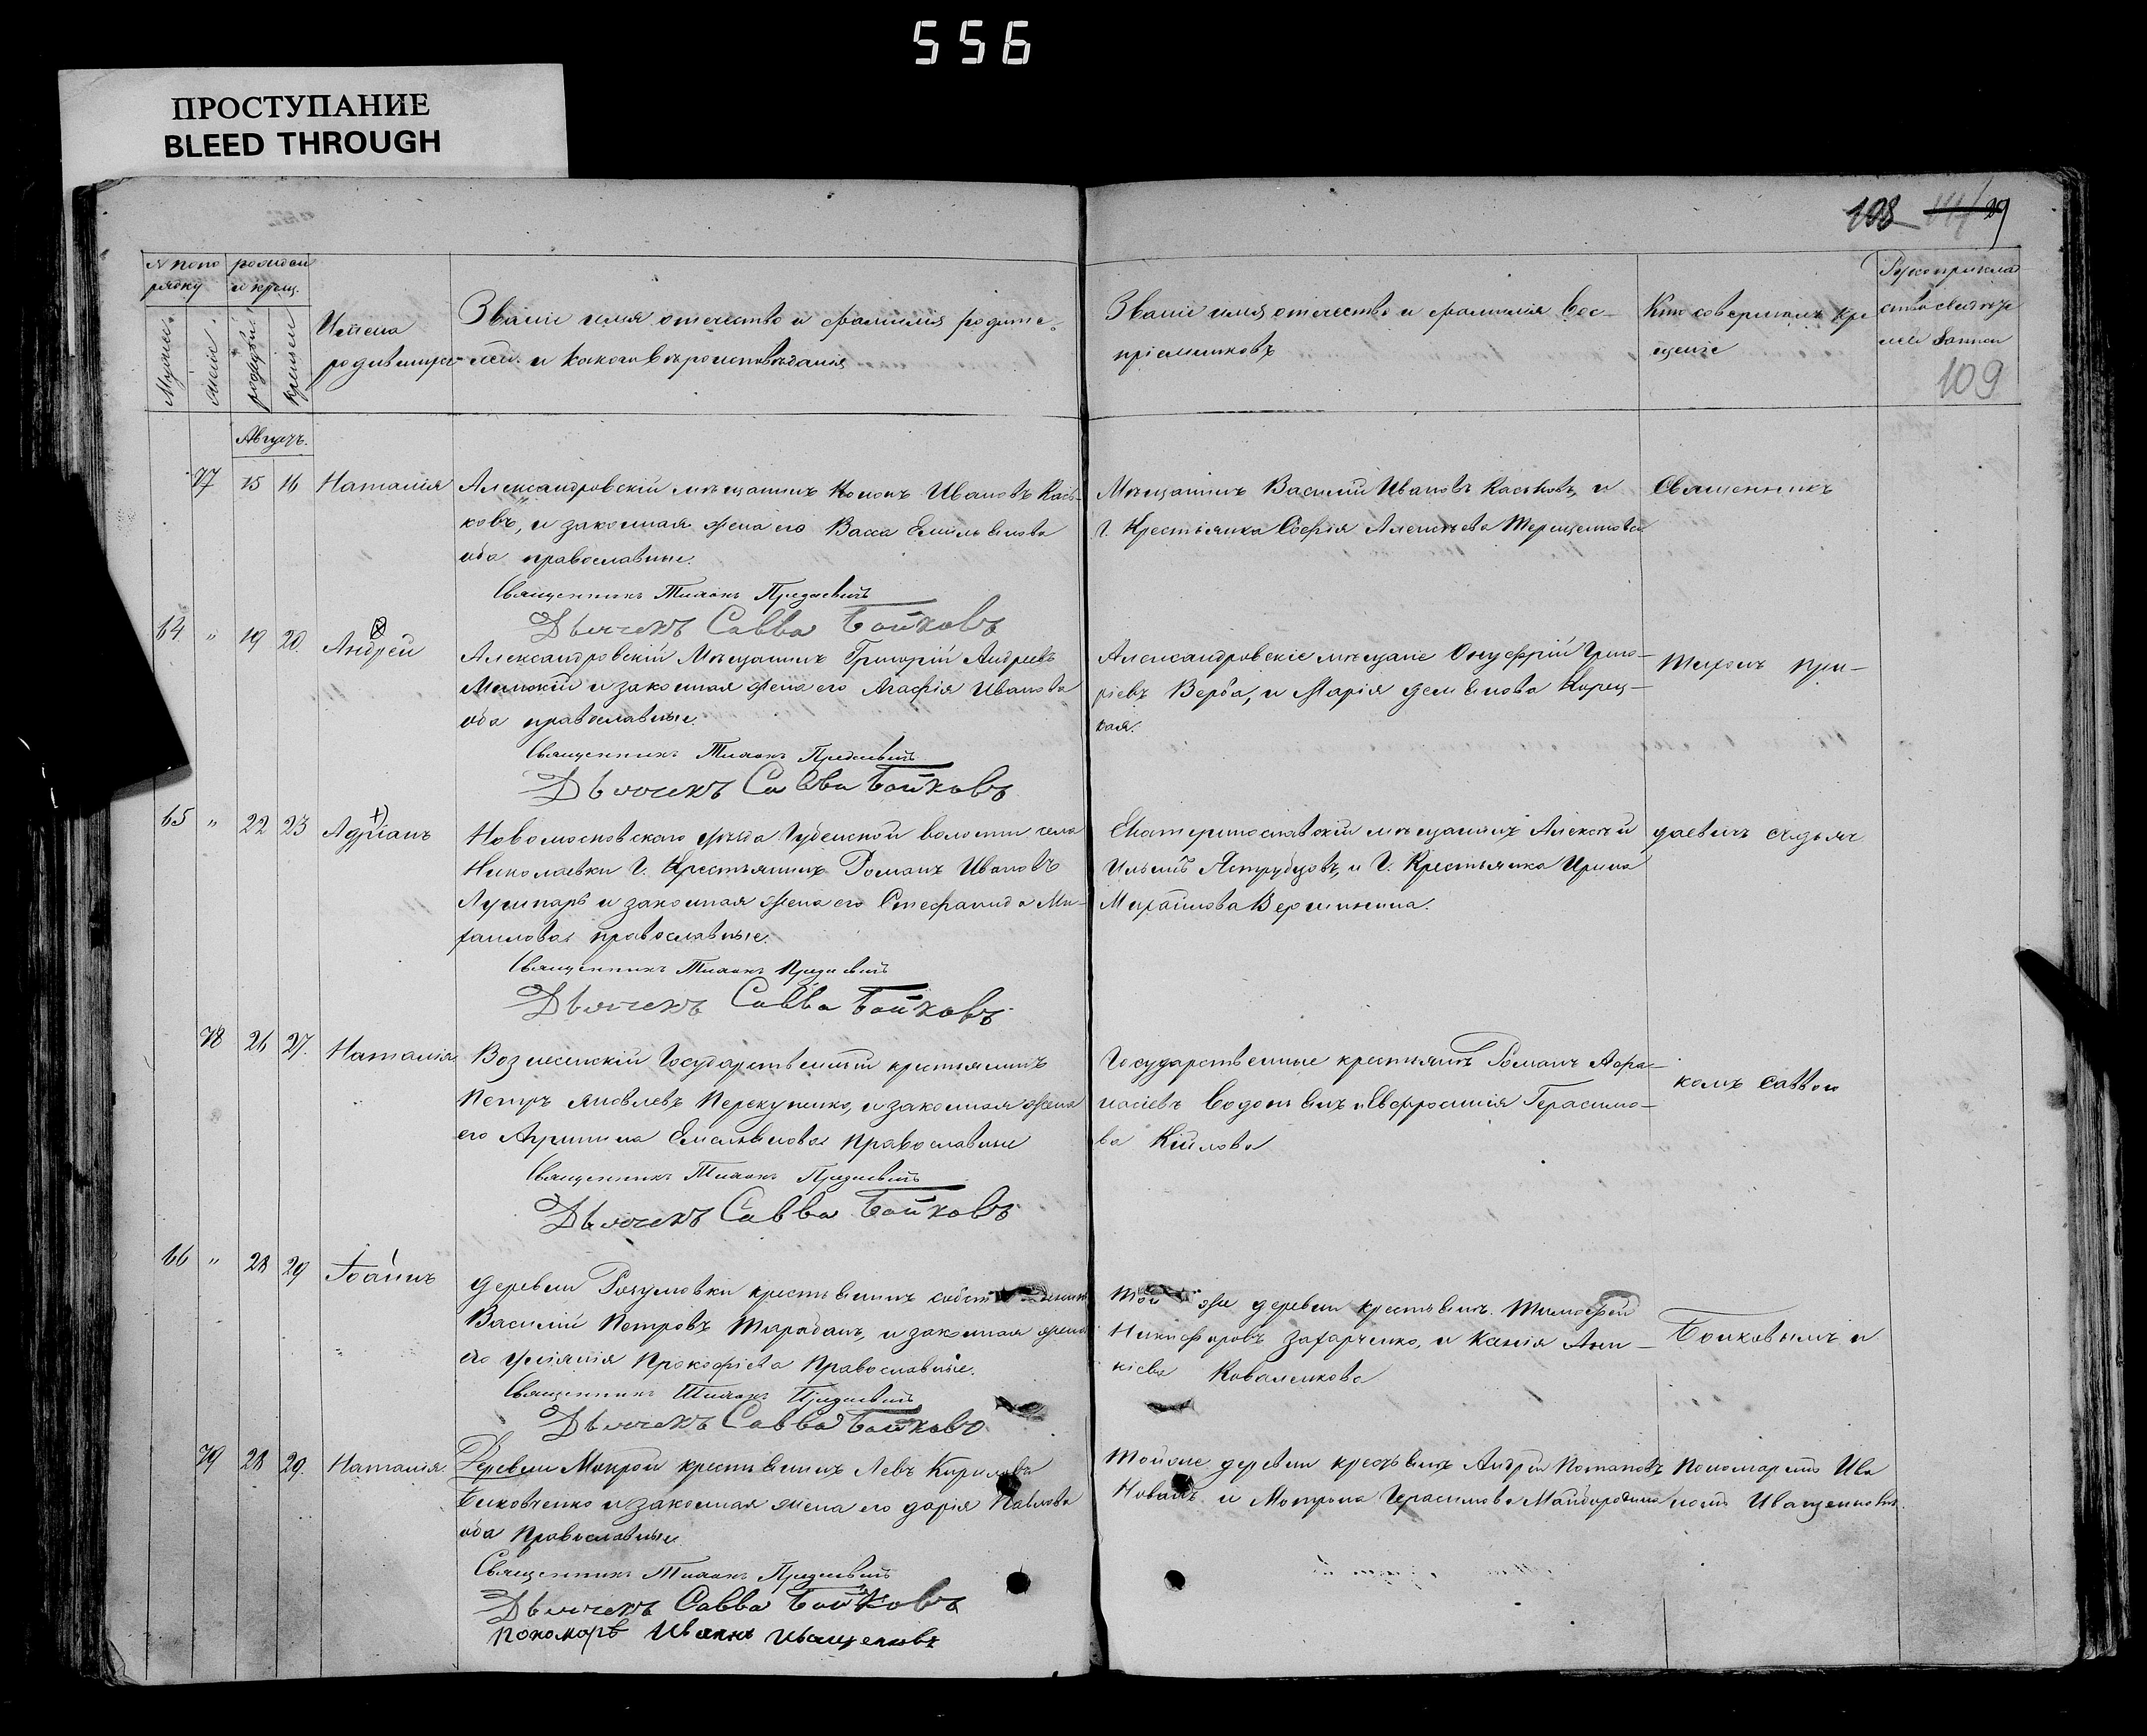 556
ПРОСТУПАНИЕ
BLEED THROUGH
108 29
109
№ по по
рядку
рожден
и крещ.
Мужеск.
женск.
рожден.
крещен.
Имена
родившихся
Званіе имя отчество и фамилія родите-
лей. и какого вѣроисповѣданія
Званіе имя отчество и фамилія вос-
пріемниковъ
Кто совершалъ кре
щеніе
Рукоприклад
ство свидѣте
лей записи
Августъ.
77 15 16 Наталія
Александровскій мѣщанинъ Кононъ Ивановъ Кась-
ковъ, и законная жена его Васса Емельянова
оба православные.
Священникъ Тихонъ
Дьячекъ Савва Бойковъ
Мѣщанинъ Василій Ивановъ Каськовъ, и
Г. Крестьянка Софія Алексѣева Терещенкова
Священникъ
64 " 19 20. Андрей
Александровскій Мѣщанинъ Григорій Андреевъ
и законная жена его Агафія Иванова
оба православные.
Священникъ Тихонъ
Дьячекъ Савва Бойковъ
Александровскіе мѣщане Онуфрій Григо-
ріевъ Верба, и Марія Демьянова Корец-
кая.
Тихонъ
65 " 22 23 Адріанъ
Новомосковскаго уѣзда Губенской волости села
Николаевки Г. Крестьянинъ Романъ Ивановъ
и законная жена его Стефанида Ми-
хаилова православные.
Священникъ Тихонъ
Дьячекъ Савва Бойковъ
Екатеринославскій мѣщанинъ Алексѣй
Ильинъ Ястребцовъ, и Г. Крестьянка Ирина
Михайлова
даевичъ съ дьяч
78 26 27. Наталія
Вознесенскій Государственный крестьянинъ
Петръ Яковлевъ и законная жена
его Агрипина Емельянова Православные
Священникъ Тихонъ
Дьячекъ Савва Бойковъ
Государственные крестьяне Романъ Афа-
насіевъ и Евфросинія Герасимо-
ва
комъ Саввою
66 " 28 29 Іоаннъ
деревни Разумовки крестьянинъ
Василій Петровъ Тарабанъ, и законная жена
его Прокофіева Православные.
Священникъ Тихонъ
Дьячекъ Савва Бойковъ
Той же деревни крестьянинъ Тимофей
Никифоровъ Захарченко, и
Коваленкова
Бойковымъ и
79 28 29. Наталія.
Деревни Мокрой крестьянинъ Левъ Кириловъ
и законная жена его Дарія Павлова
оба Православные
Священникъ Тихонъ
Дьячекъ Савва Бойковъ
пономарь Иванъ Иващенковъ
Той же деревни крестьянинъ Андрей Потаповъ
и Матрона Герасимова
Пономаремъ Ива
номъ Иващенковы